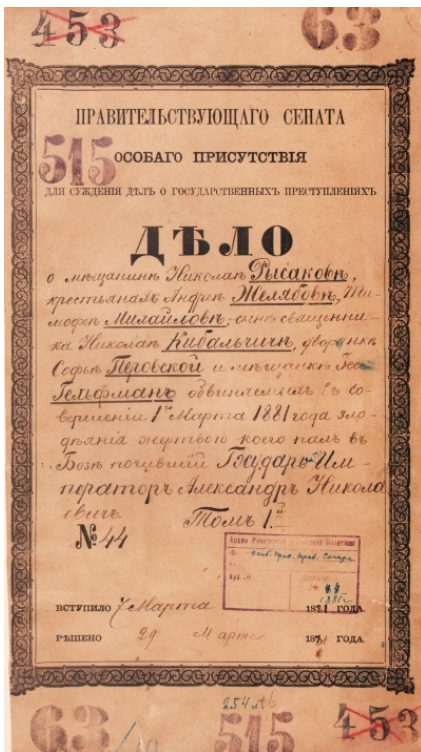 453 63
ПРАВИТЕЛЬСТВУЮЩАГО СЕНАТА
515
ОСОБАГО ПРИСУТСТВІЯ
ДЛЯ СУЖДЕНІЯ ДѢЛЪ О ГОСУДАРСТВЕННЫХЪ ПРЕСТУПЛЕНІЯХЪ
ДѢЛО
о мѣщанинѣ Николаѣ Рысаковѣ,
крестьянахъ Андреѣ Желябовѣ, Ти-
мофеѣ Михайловѣ, сынѣ священни-
ка Николаѣ Кибальчичѣ, дворянкѣ
Софьѣ Перовской и мѣщанкѣ
Гельфманъ обвиняемыхъ въ со-
вершеніи 1го Марта 1881 года зло-
дѣянія жертвою коего палъ въ
Бозѣ почившій Государь Им-
ператоръ Александръ Никола
евичъ.
Томъ 1й
№ 44
Архив
Ф. Особ. Прис. Прав. Сената
Арх. №
1881 г.
ВСТУПИЛО 7 Марта 1881 ГОДА.
РѢШЕНО 29 Марта 1881 ГОДА.
254
63 515 453